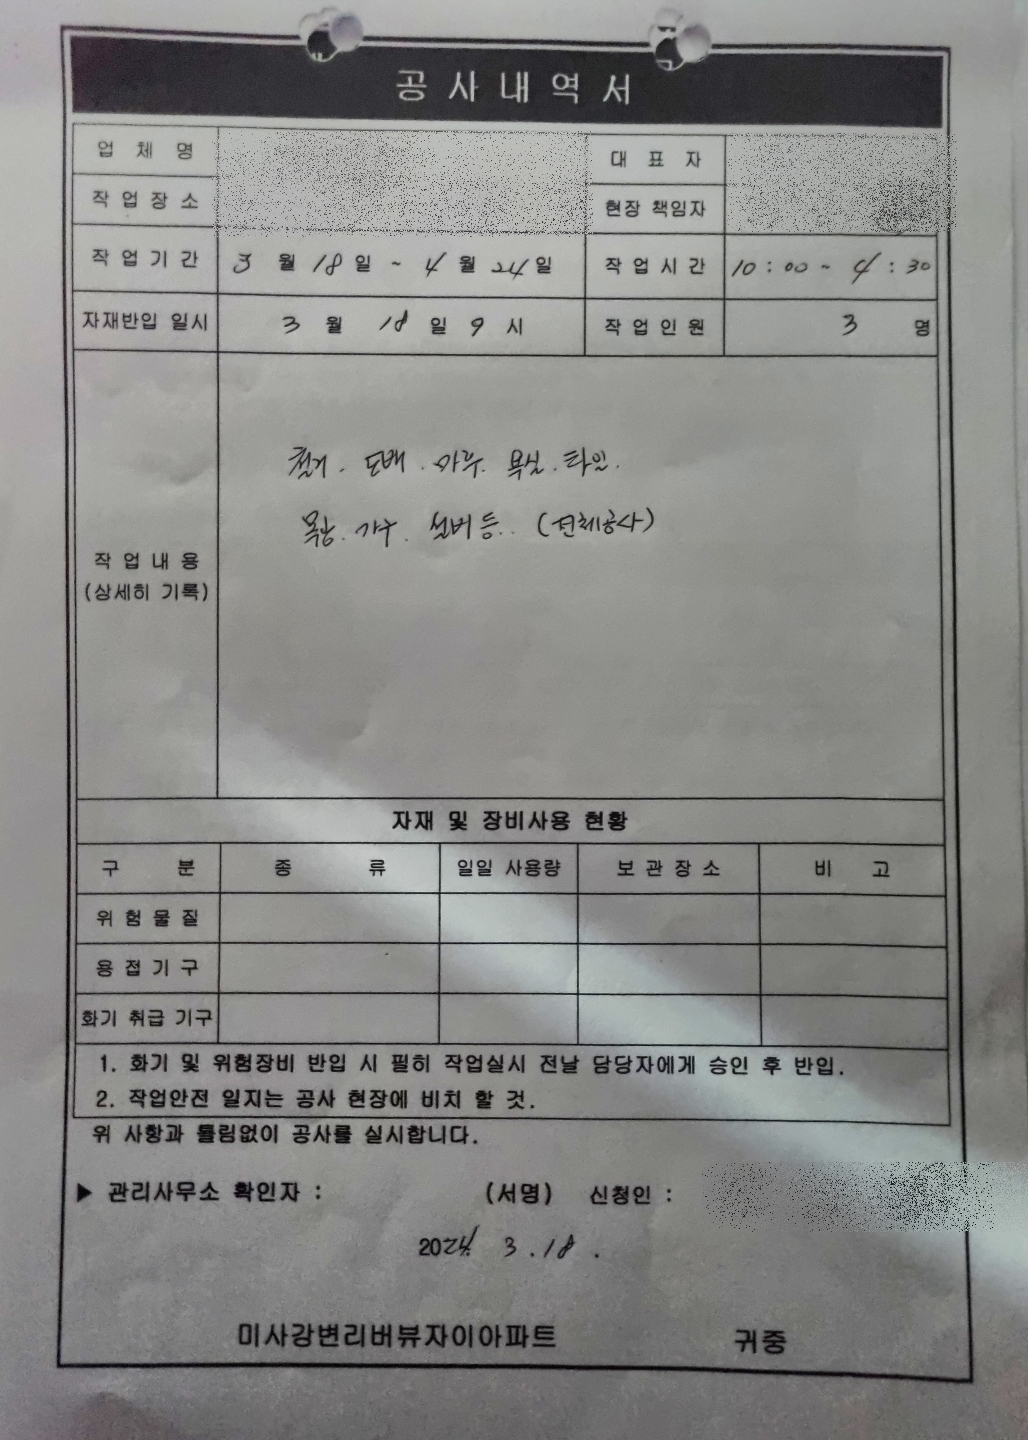 공사내역서
업체명 대표자
작업장소 현장 책임자
작업기간 3월 18일 ~ 4월 24일 작업시간 10:00 ~ 4:30
자재반입 일시 3월 18일 9시 작업인원 3명
철거. 도배. 마루. 욕실. 타일.
목창. 가구. 설비등.. (전체공사)
작업내용
(상세히 기록)
자재 및 장비사용 현황
구분 종류 일일 사용량 보관장소 비고
위험물질
용접기구
화기 취급 기구
1. 화기 및 위험장비 반입 시 필히 작업실시 전날 담당자에게 승인 후 반입.
2. 작업안전 일지는 공사 현장에 비치 할 것.
위 사항과 틀림없이 공사를 실시합니다.
▶ 관리사무소 확인자 : (서명) 신청인 :
2024. 3. 18.
미사강변리버뷰자이아파트 귀중